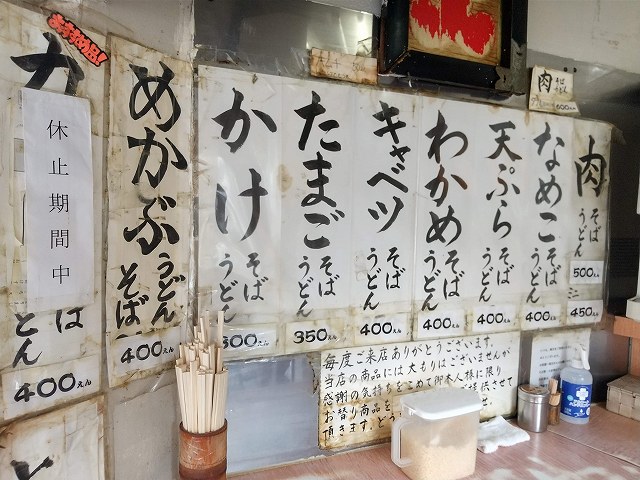 おすすめ品!
カ
休止期間中
ば
とん
400えん
めかぶ
うどん
そば
400えん
かけ
そば
うどん
300えん
たまご
そば
うどん
350えん
キャベツ
そば
うどん
400えん
わかめ
そば
うどん
400えん
天ぷら
そば
うどん
400えん
なめこ
そば
うどん
400えん
肉
そば
うどん
500えん
ミニ
450えん
肉
そば
うどん
600えん
毎度ご来店ありがとうございます。
当店の商品には大もりはございませんが
感謝の気持ちをこめて御本人様に限り
お替り商品を
提供させて
頂きます。